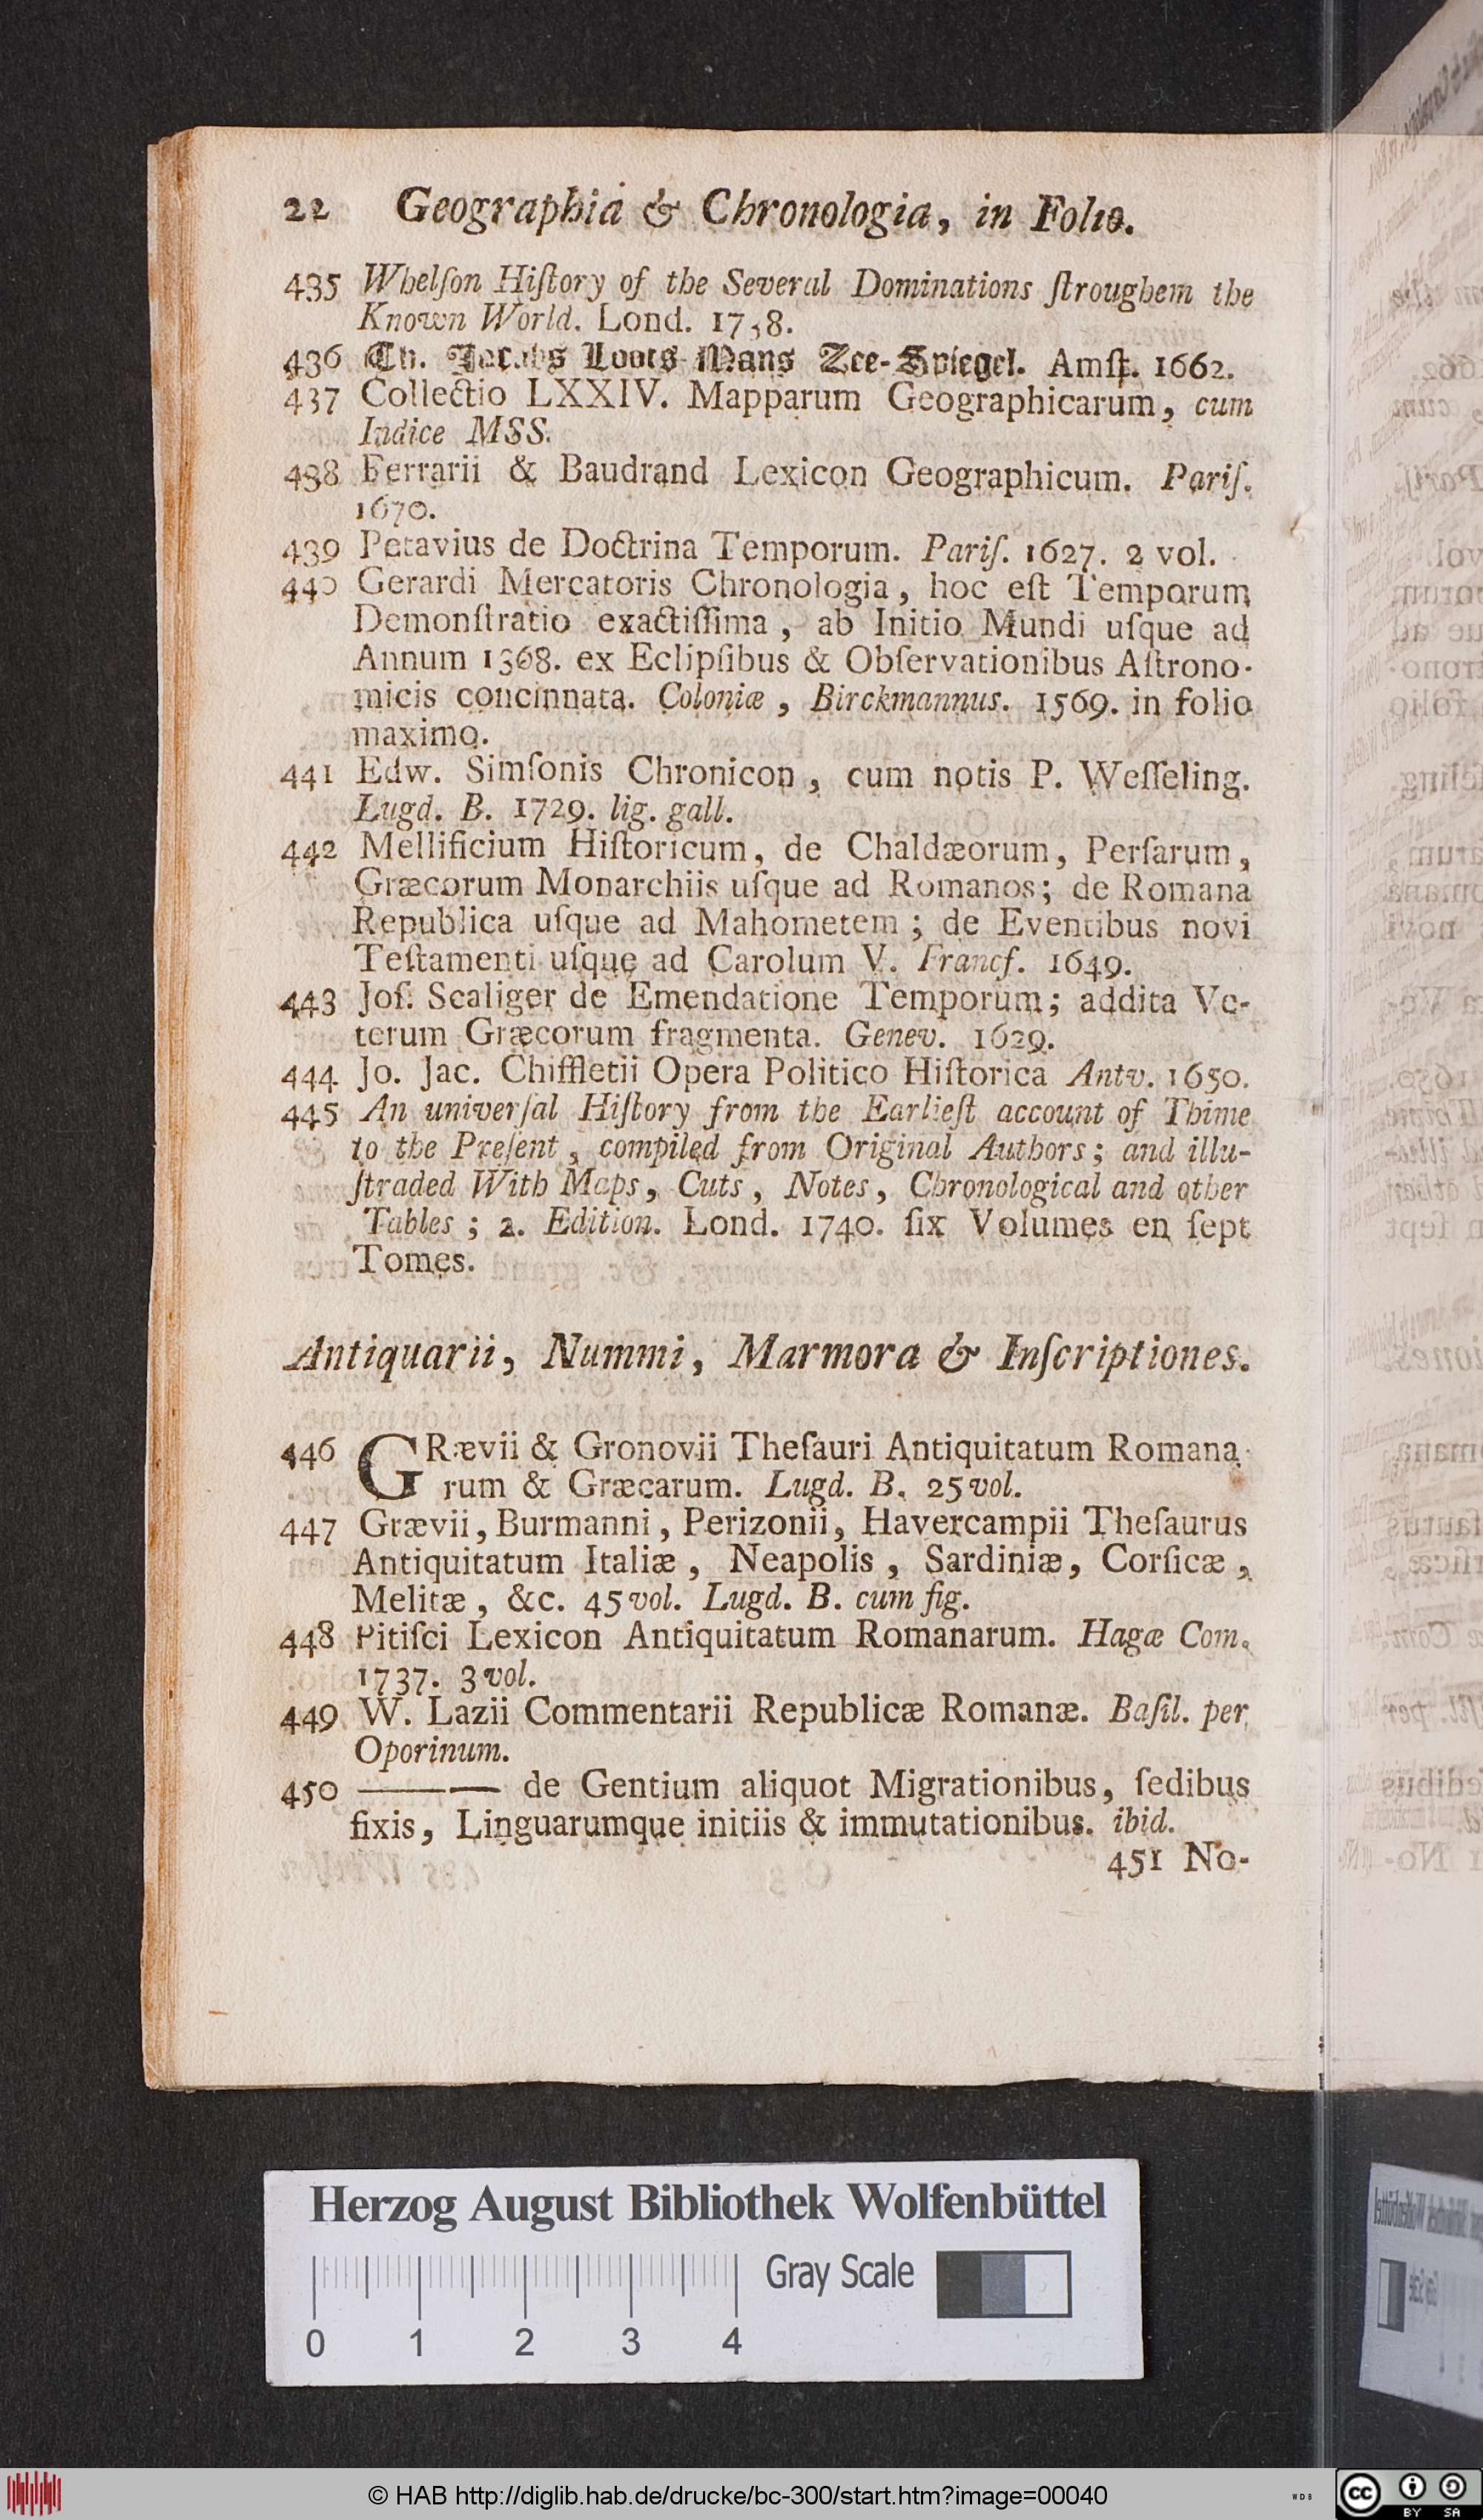 22 Geographia & Chronologia, in Folio.
435 Whelſon Hiſtory of the Several Dominations ſtroughem the
Known World. Lond. 1738.
436 Th. Jacobs Loots-Mans Zee-Spiegel. Amſt. 1662.
437 Collectio LXXIV. Mapparum Geographicarum, cum
Indice MSS.
438 Ferrarii & Baudrand Lexicon Geographicum. Pariſ.
1670.
439 Petavius de Doctrina Temporum. Pariſ. 1627. 2 vol.
440 Gerardi Mercatoris Chronologia, hoc eſt Temporum
Demonſtratio exactiſſima, ab Initio Mundi uſque ad
Annum 1368. ex Eclipſibus & Obſervationibus Aſtrono-
micis concinnata. Coloniæ, Birckmannus. 1569. in folio
maximo.
441 Edw. Simſonis Chronicon, cum notis P. Weſſeling.
Lugd. B. 1729. lig. gall.
442 Mellificium Hiſtoricum, de Chaldæorum, Perſarum,
Græcorum Monarchiis uſque ad Romanos; de Romana
Republica uſque ad Mahometem; de Eventibus novi
Teſtamenti uſque ad Carolum V. Francf. 1649.
443 Joſ. Scaliger de Emendatione Temporum; addita Ve-
terum Græcorum fragmenta. Genev. 1629.
444 Jo. Jac. Chiffletii Opera Politico Hiſtorica Antv. 1650.
445 An univerſal Hiſtory from the Earlieſt account of Thime
to the Preſent, compiled from Original Authors; and illu-
ſtraded With Maps, Cuts, Notes, Chronological and other
Tables; 2. Edition. Lond. 1740. ſix Volumes en ſept
Tomes.
Antiquarii, Nummi, Marmora & Inſcriptiones.
446 GRævii & Gronovii Theſauri Antiquitatum Romana-
rum & Græcarum. Lugd. B. 25 vol.
447 Grævii, Burmanni, Perizonii, Havercampii Theſaurus
Antiquitatum Italiæ, Neapolis, Sardiniæ, Corſicæ,
Melitæ, &c. 45 vol. Lugd. B. cum fig.
448 Pitiſci Lexicon Antiquitatum Romanarum. Hagæ Com.
1737. 3 vol.
449 W. Lazii Commentarii Republicæ Romanæ. Baſil. per
Oporinum.
450 ——— de Gentium aliquot Migrationibus, ſedibus
fixis, Linguarumque initiis & immutationibus. ibid.
451 No-
Herzog August Bibliothek Wolfenbüttel
Gray Scale
0 1 2 3 4
© HAB http://diglib.hab.de/drucke/bc-300/start.htm?image=00040
WDB
cc BY SA